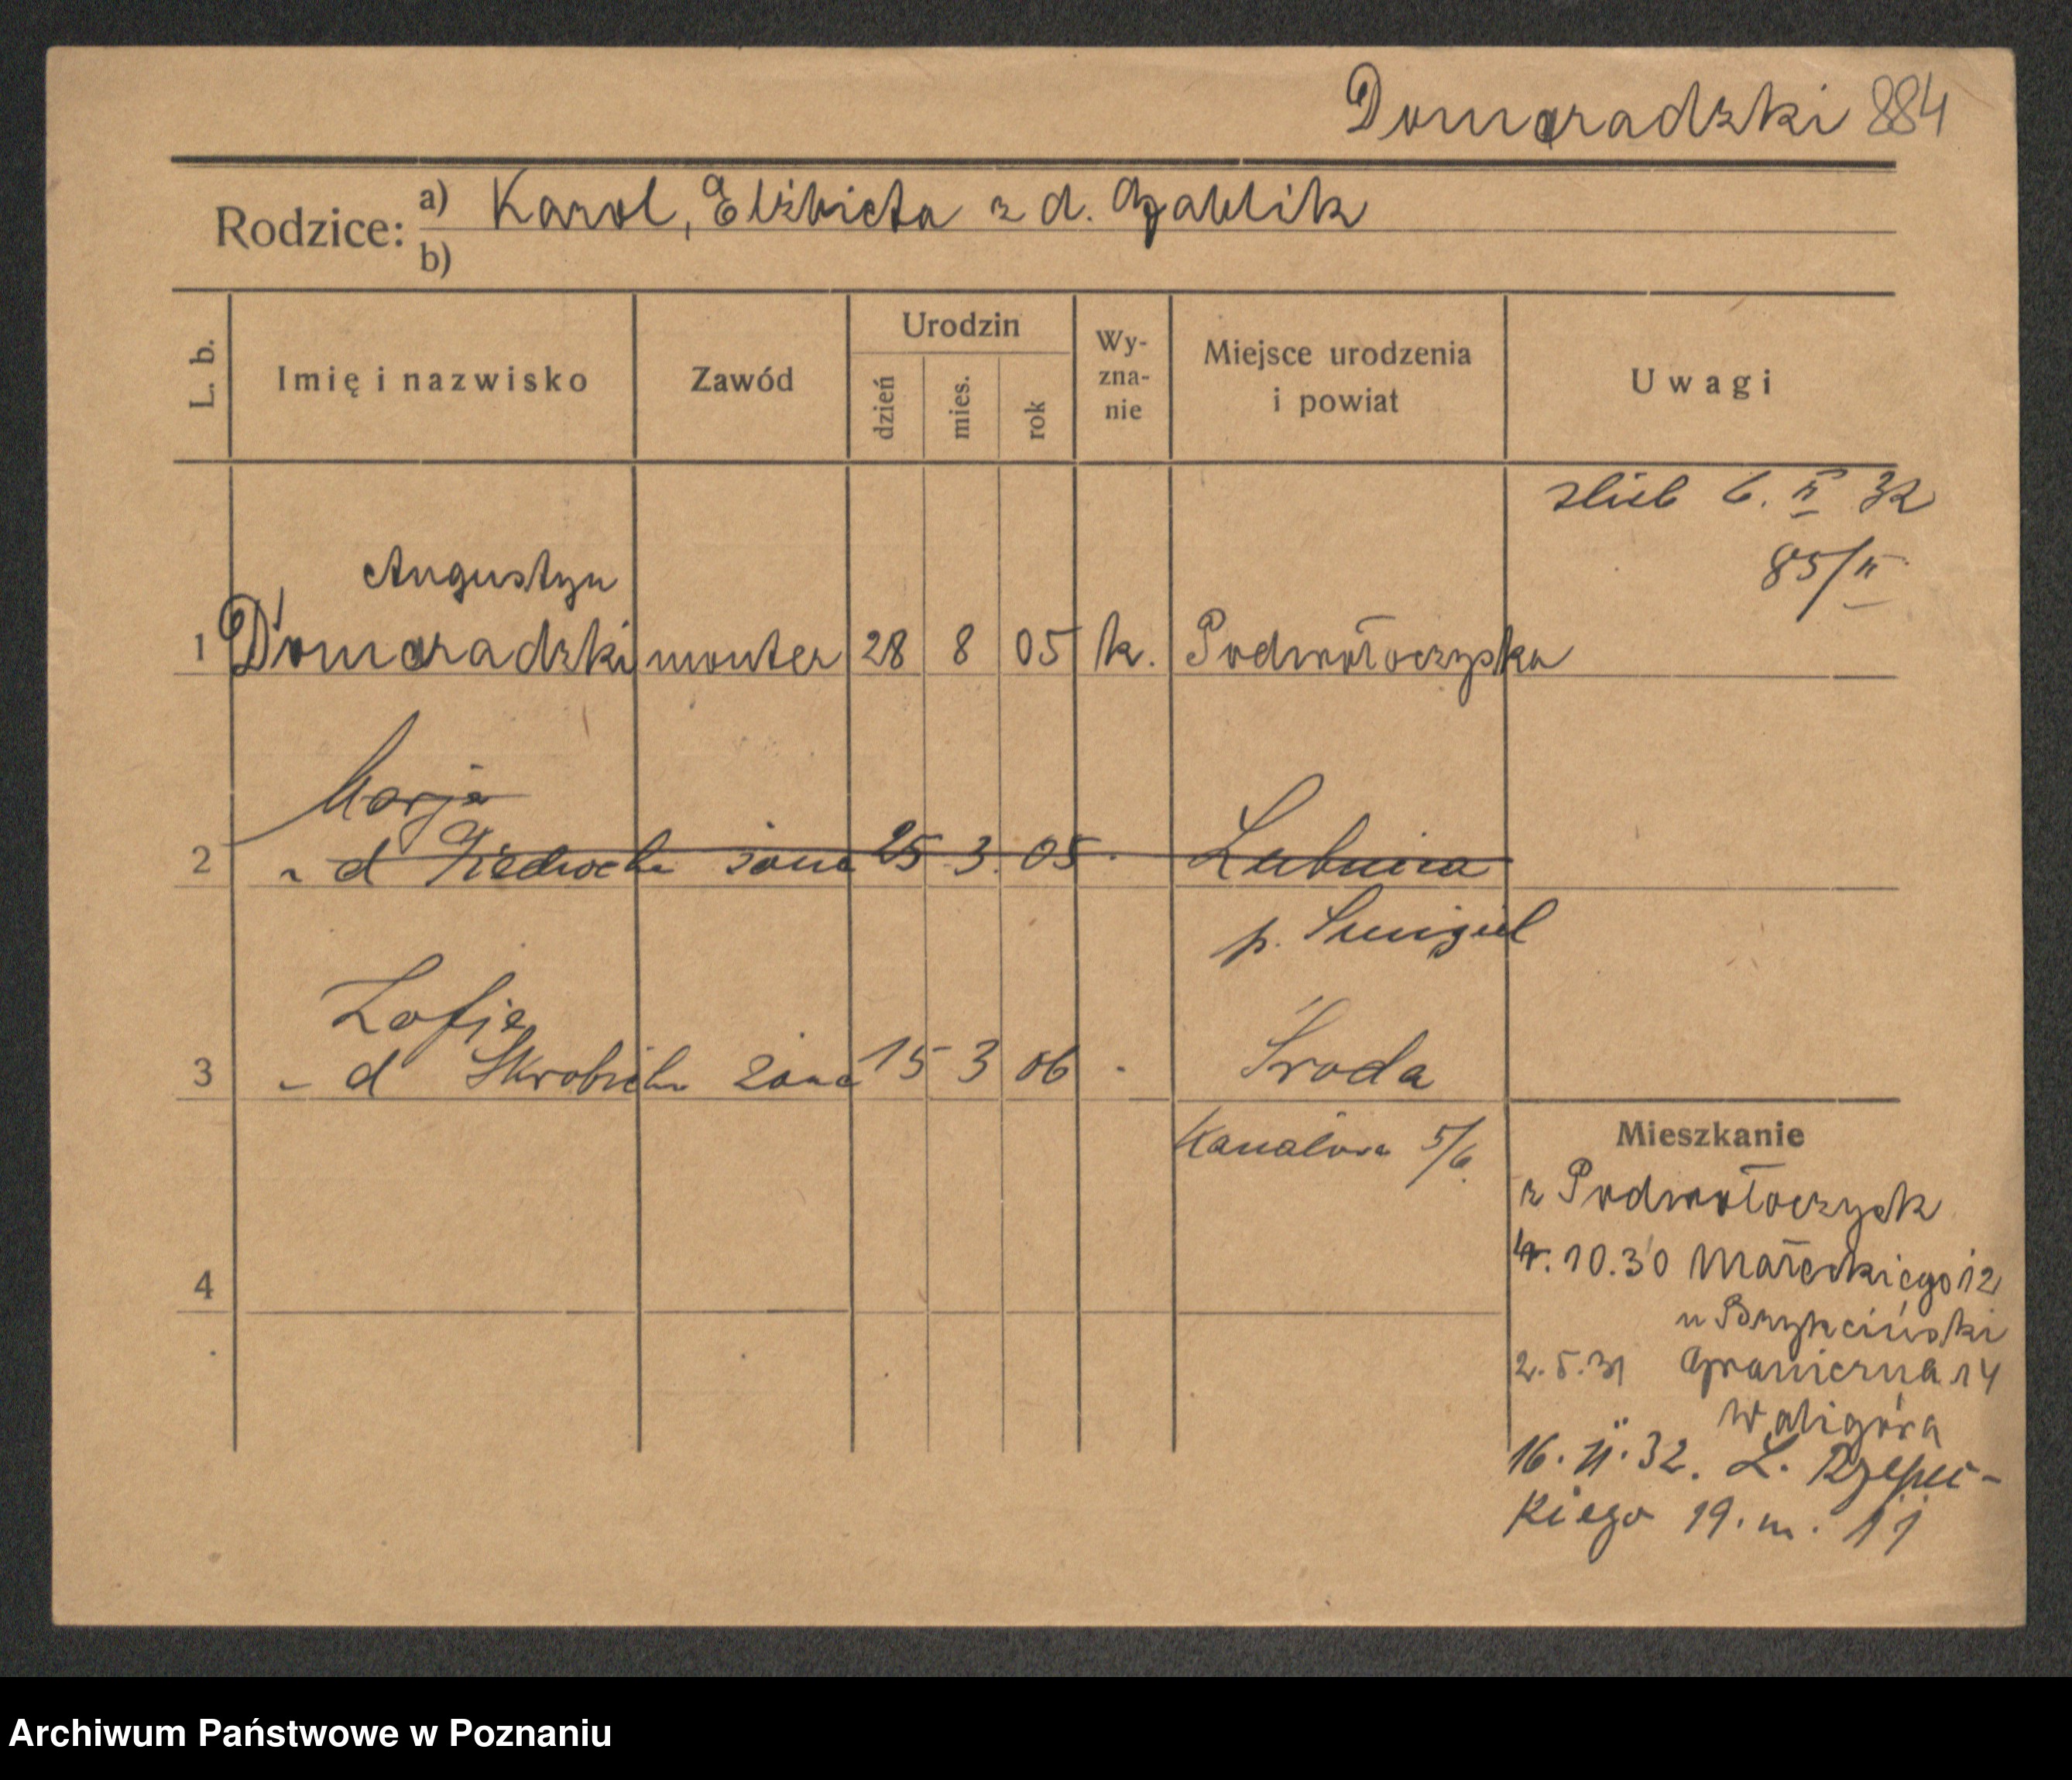 Domaradzki 884
Rodzice: a) Karol, Elżbieta z d. Gablik
b)
L. b. Imię i nazwisko Zawód Urodzin dzień mies. rok Wyznanie Miejsce urodzenia i powiat Uwagi
ślub 6. II 32
85/II
Augustyn
1 Domaradzki monter 28 8 05 k. Podwołoczyska
Marja
2 d żona 25 3 05 Lubnica
p. Śmigiel
Zofja
3 d żona 15 3 06 Środa
Kanałowa 5/6.
Mieszkanie
z Podwołoczysk
4. 10.30 Małeckiego 12
4
u Brzykciński
2. 5. 31 Graniczna 14
Waligóra
16. II. 32. L. Rzepec-
kiego 19. m. 11
Archiwum Państwowe w Poznaniu